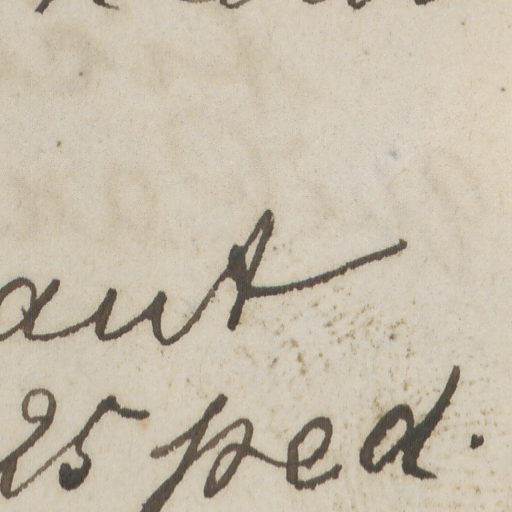 aut
25 ped.